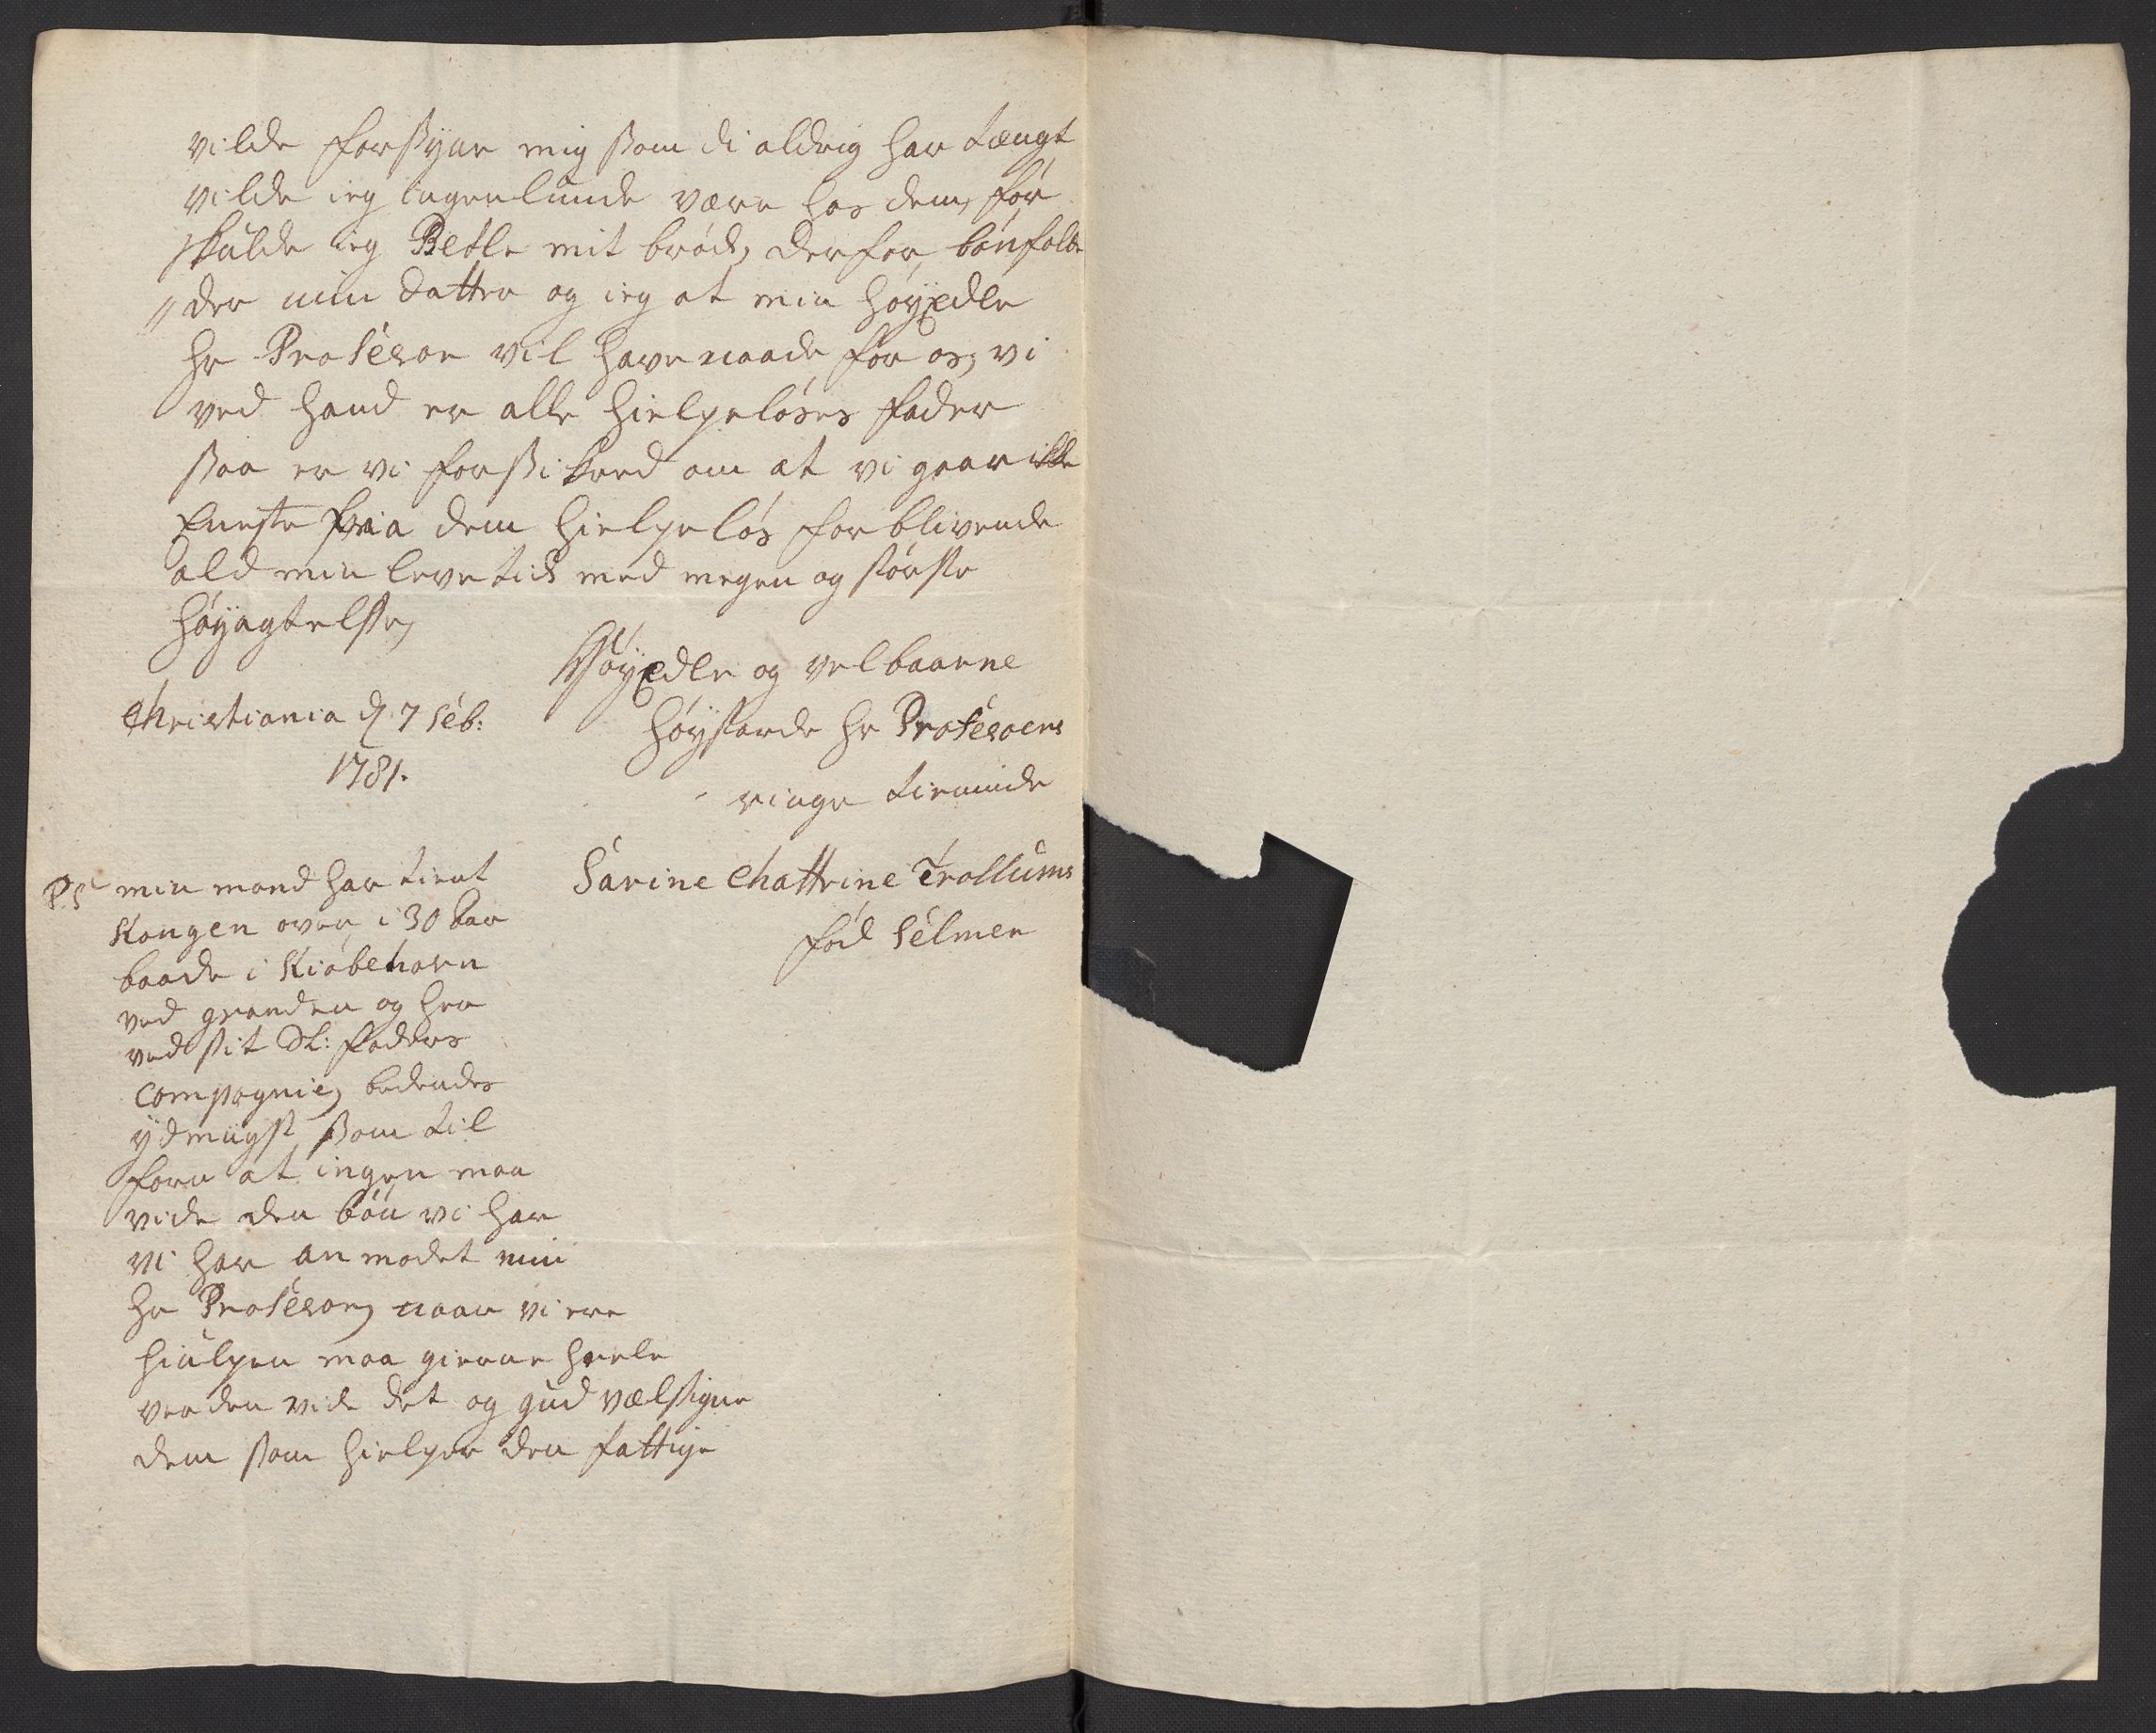 vilde forsyne mig som di aldrig har tængt
vilde ieg ingenlunde være hos dem, før
skulde ieg Betle mit brød, derfor bønfald-
"der min datter og ieg at min høyædle
hr Profesor vil have naade for os, vi
ved hand er alle hielpeløses fader
saa er vi forsikred om at vi gaar ikke
Eneste fra dem hielpeløs forblivende
ald min leve tid med megen og største
høyagtelse,
Høyædle og velbaarne
Christiania d 7 feb:
høystærde hr Profesoens
1781.
ringe tienninde
Sarine Chattrine Trollums
fød Selmer
PS min mand har tient
Kongen over i 30 aar
baade i Kiøbehavn
ved garden og her
ved sit Sl: faders
compagnie, bedendes
ydmygst som til
forn at ingen maa
vide den bøn vi har
vi har anmodet min
hr Profesor, naar vi ere
hiulpen maa gierne heele
verden vide det og gud vælsigne
dem som hielper den fattige